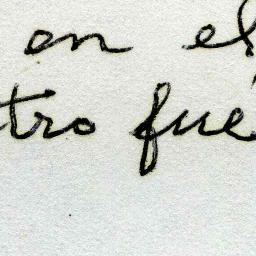 en el
tro fué